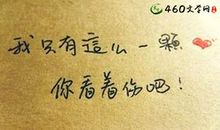 460文学网
我只有這么一顆
你看着伤吧！